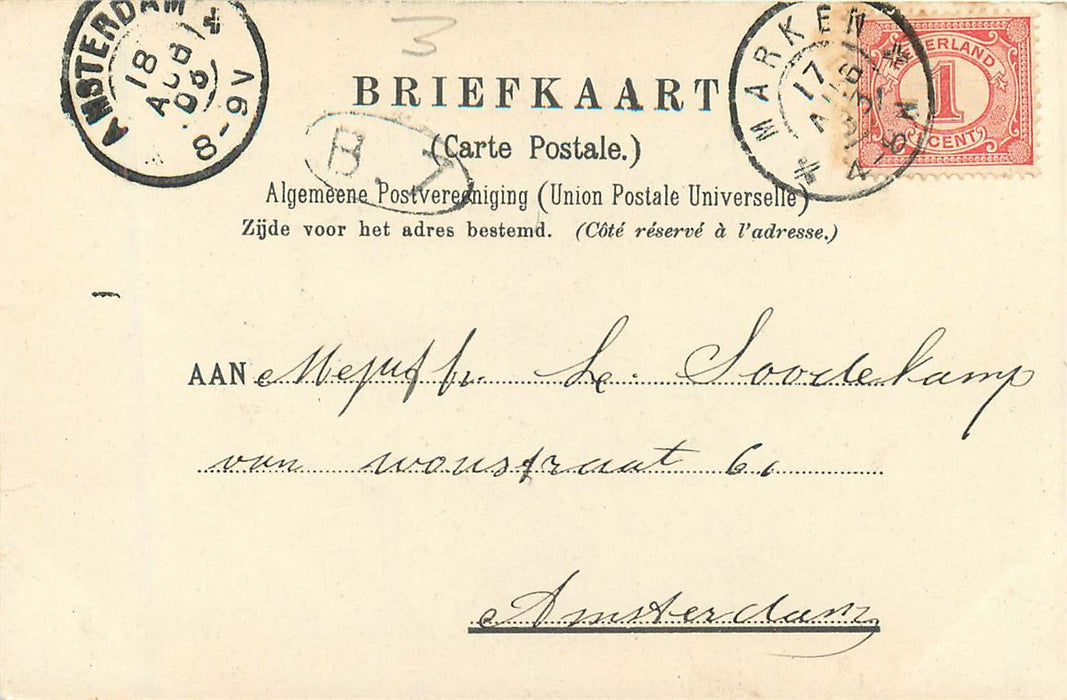 AMSTERDAM
18
AUG
03
8-9V
3
MARKEN
17
4-5N
NEDERLAND
1
CENT
BRIEFKAART
(Carte Postale.)
B.7
Algemeene Postvereeniging (Union Postale Universelle)
Zijde voor het adres bestemd. (Côté réservé à l'adresse.)
AAN Mejuffr. L. Soordekamp
van woustraat 61
Amsterdam